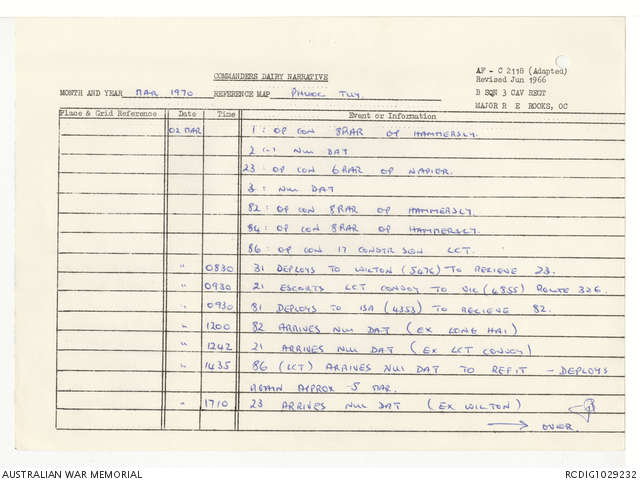 AF - C 2118 (Adapted)
Revised Jun 1966
COMMANDERS DAIRY NARRATIVE
MONTH AND YEAR MAR 1970 REFERENCE MAP PHUOC TUY. B SQN 3 CAV REGT
MAJOR R E ROOKS, OC
Place & Grid Reference Date Time Event or Information
02 MAR 1 : OP CON 8RAR OP HAMMERSLY.
2(-) NUI DAT
23 : OP CON 6RAR OP NAPIER.
3 : NUI DAT
82 : OP CON 8RAR OP HAMMERSLY.
84 : OP CON 8RAR OP HAMMERSLY.
86 : OP CON 17 CONSTR SQN LCT.
" 0830 31 DEPLOYS TO WILTON (5476) TO RELIEVE 23.
" 0930 21 ESCORTS LCT CONVOY TO VIC (4855) ROUTE 326.
" 0930 81 DEPLOYS TO ISA (4353) TO RELIEVE 82.
" 1200 82 ARRIVES NUI DAT (EX LONG HAI)
" 1242 21 ARRIVES NUI DAT (EX LCT CONVOY)
" 1435 86 (LCT) ARRIVES NUI DAT TO REFIT - DEPLOYS
AGAIN APPROX 5 MAR.
" 1710 23 ARRIVES NUI DAT (EX WILTON)
→ OVER.
AUSTRALIAN WAR MEMORIAL RCDIG1029232